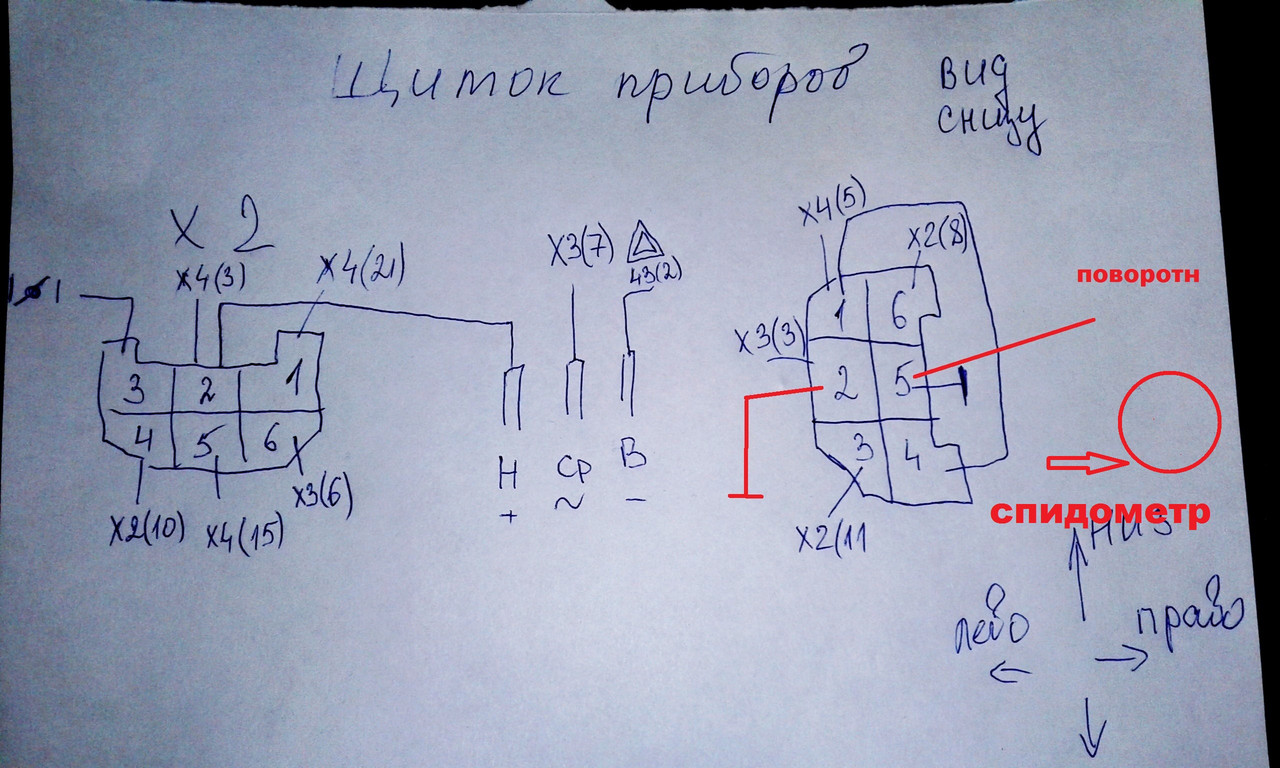 Щиток приборов вид
снизу
X 2
X4(3)
X4(21)
X3(7)
43(2)
X4(5)
X2(8)
поворотн
X3(3)
3 2 1
4 5 6
X2(10) X4(15)
X3(6)
Н Ср В
+ ~ –
1 6
2 5
3 4
X2(11
спидометр
низ
лево
право